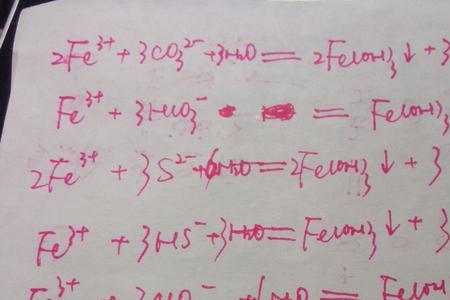 2Fe³⁺ + 3CO₃²⁻ + 3H₂O = 2Fe(OH)₃↓ + 3
Fe³⁺ + 3HCO₃⁻ = Fe(OH)₃
2Fe³⁺ + 3S²⁻ + 6H₂O = 2Fe(OH)₃↓ + 3
Fe³⁺ + 3HS⁻ + 3H₂O = Fe(OH)₃↓ + 3